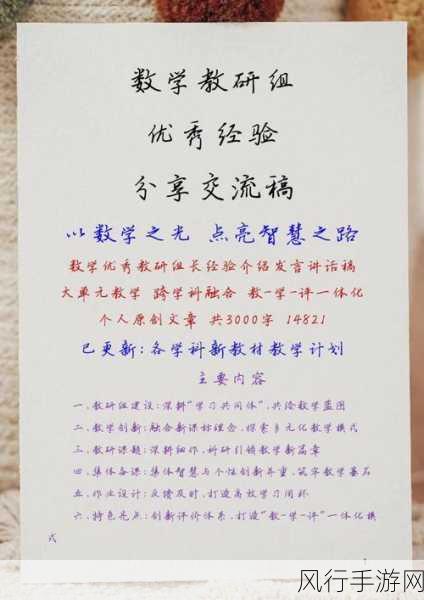 数学教研组
优秀经验
分享交流稿
以数学之光 点亮智慧之路
数学优秀教研组长经验介绍发言讲话稿
大单元教学 跨学科融合 教-学-评一体化
个人原创文章 共3000字 14821
已更新:各学科新教材教学计划
主要内容
一、教研组建设:深耕“学习共同体”,共绘教学蓝图
二、教学创新:融合新课标理念,探索多元化教学模式
三、教研课题:深耕细作,科研引领教学新篇章
四、集体备课:集体智慧与个性创新并重,筑牢教学基石
五、作业设计:反馈及时,打造高效学习闭环
六、特色亮点:创新评价体系,打造“教-学-评”一体化模
式
风行手游网